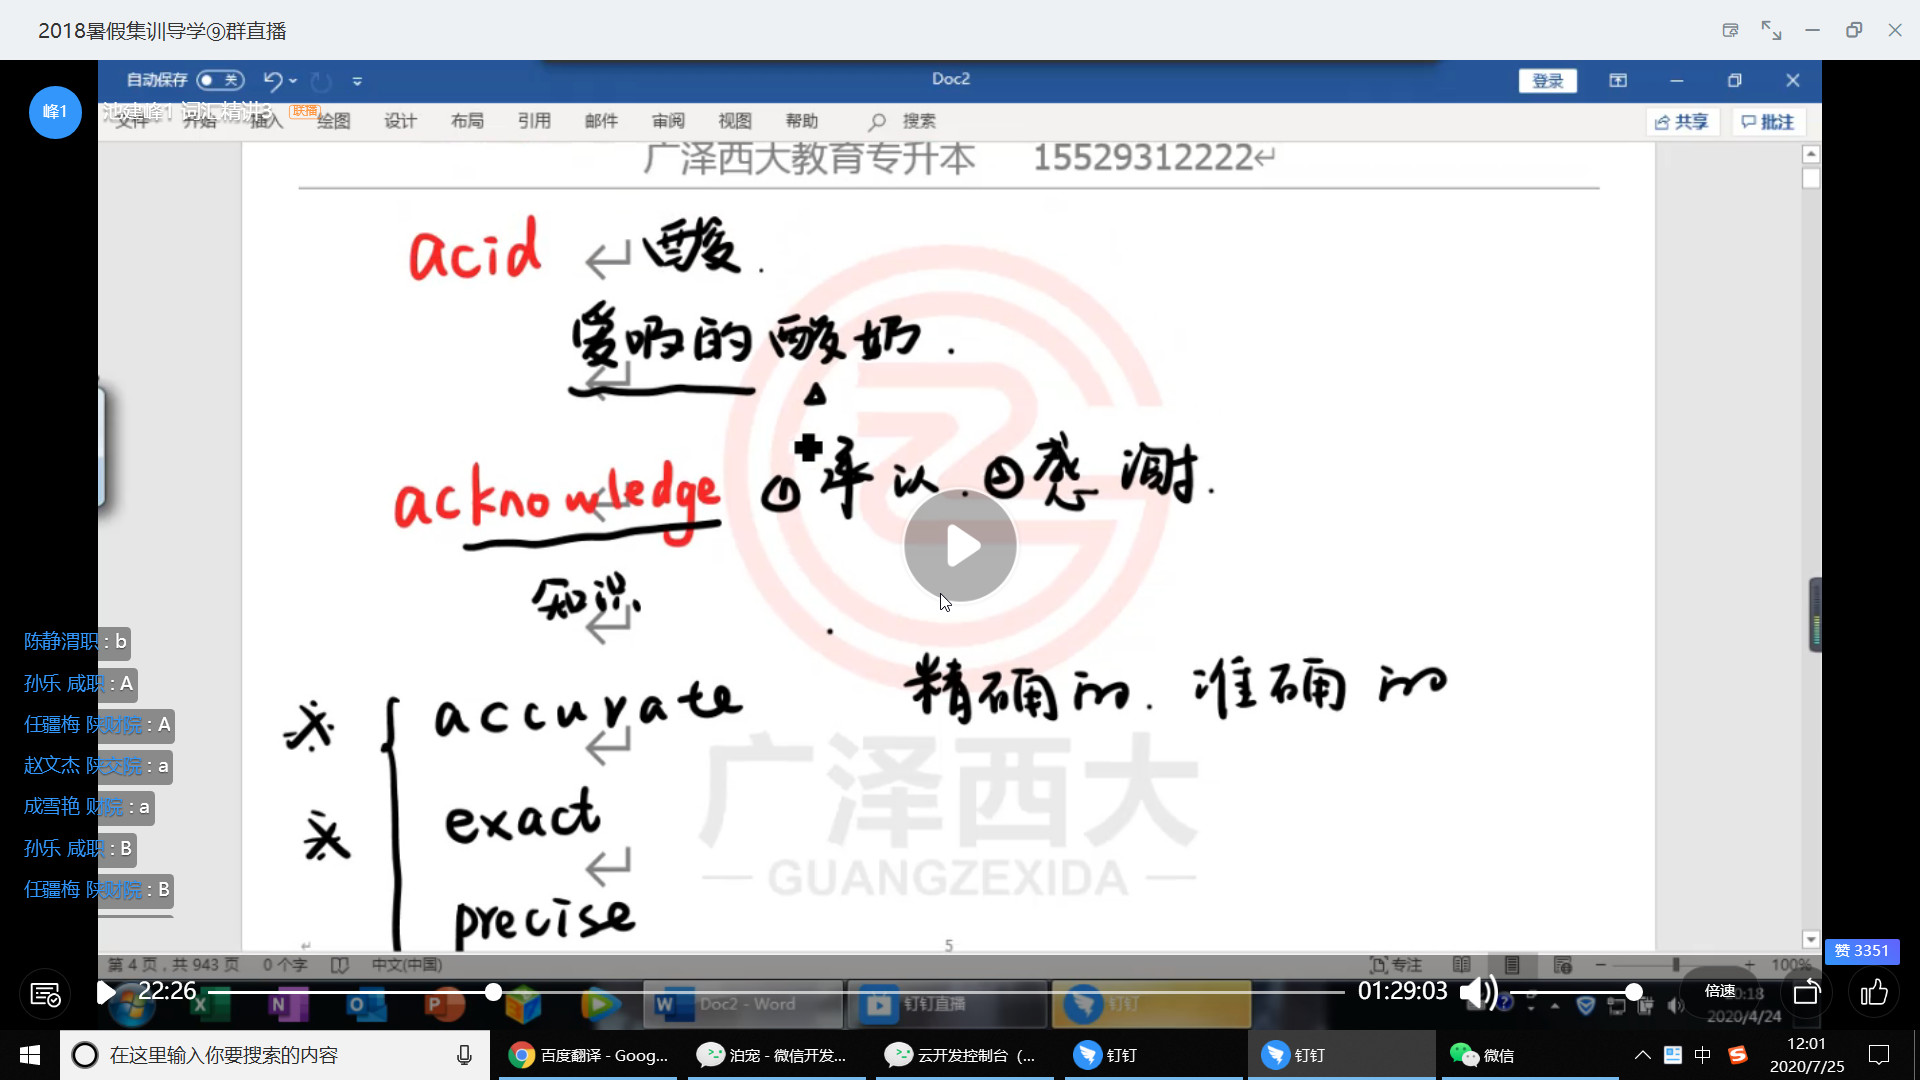 2018暑假集训导学⑨群直播
自动保存 关
Doc2
登录
峰1
池建峰1 词汇精讲3 联播
文件 开始 插入 绘图 设计 布局 引用 邮件 审阅 视图 帮助 搜索
共享 批注
广泽西大教育专升本 15529312222
acid 酸.
爱吗的酸奶.
acknowledge ①承认.②感谢.
知识
accurate 精确的.准确的
exact
precise
广泽西大
GUANGZEXIDA
陈静渭职 : b
孙乐 咸职 : A
任疆梅 陕财院 : A
赵文杰 陕交院 : a
成雪艳 财院 : a
孙乐 咸职 : B
任疆梅 陕财院 : B
5
赞 3351
第 4 页，共 943 页 0 个字 中文(中国)
专注
100%
22:26
01:29:03
倍速
Doc2 - Word
钉钉直播
钉钉
2020/4/24
在这里输入你要搜索的内容
百度翻译 - Goog...
泊宠 - 微信开发...
云开发控制台（...
钉钉
钉钉
微信
中
12:01
2020/7/25